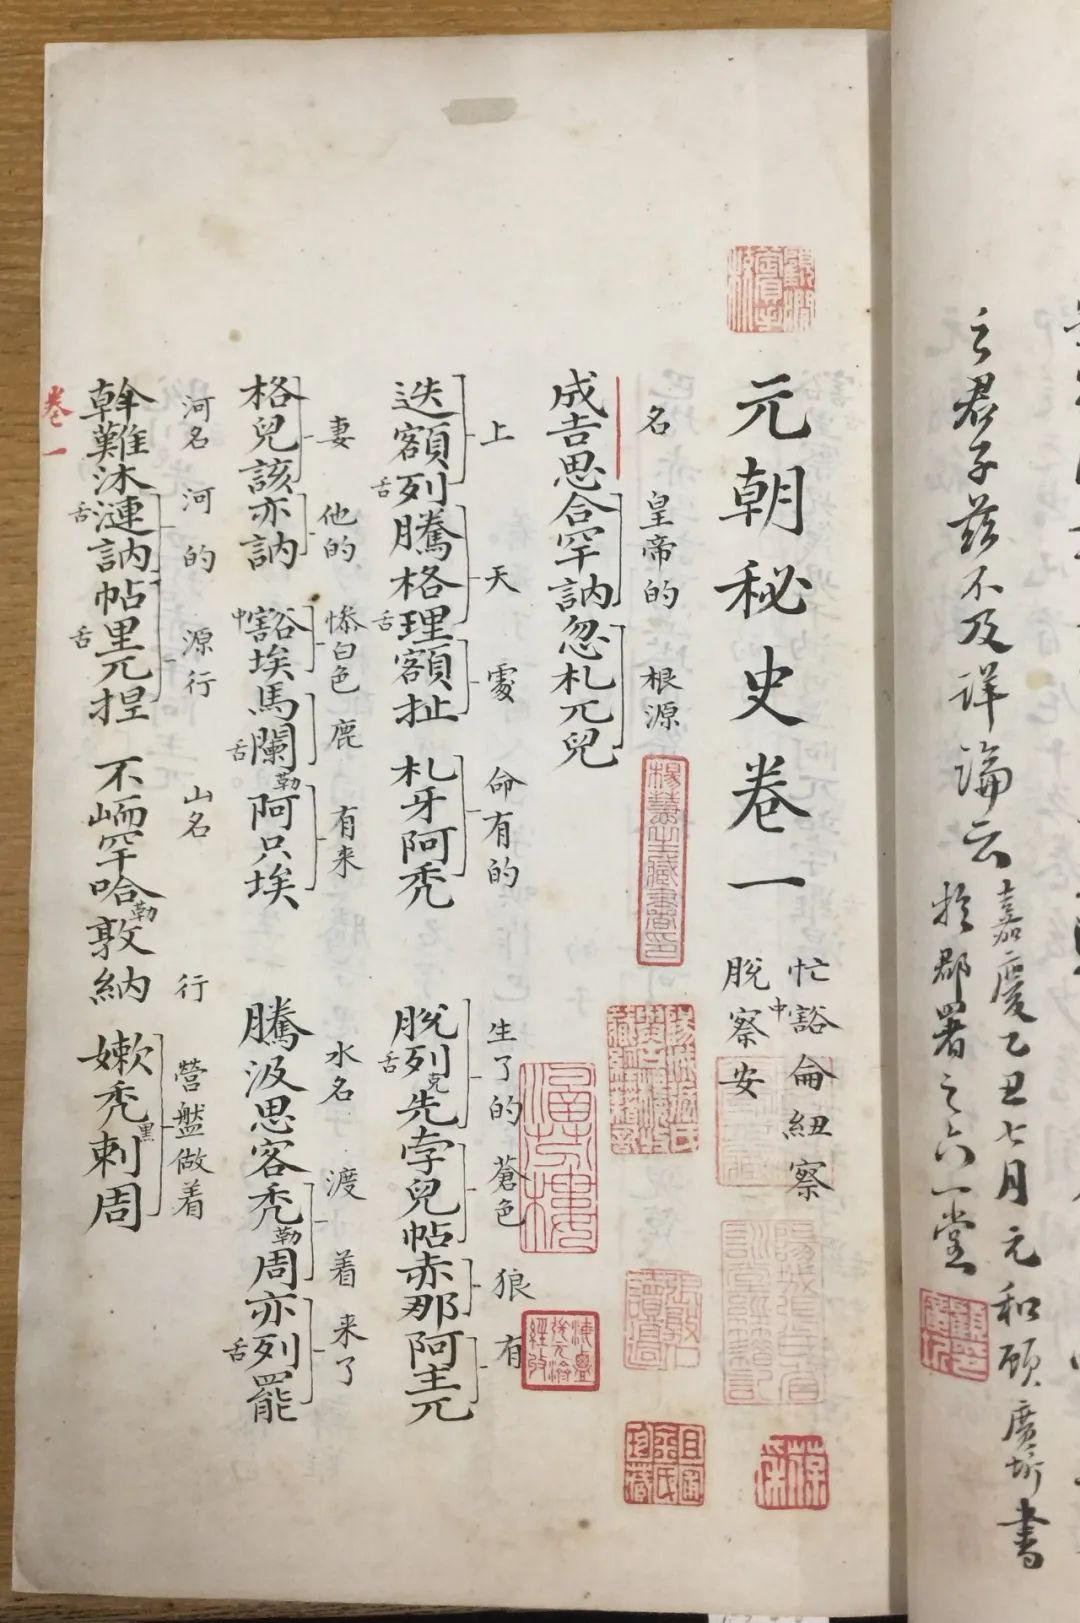 之君子兹不及詳論云
嘉慶乙丑七月元和顧廣圻書
於郡署之六一堂
元朝秘史卷一
忙中豁侖紐察
脫察安
名 皇帝的 根源
成吉思合罕訥忽札兀兒
上 天 處 命有的 生了的 蒼色 狼 有
迭額舌列騰格舌理額扯 札牙阿禿 脫舌列克先孛兒帖赤那阿主兀
妻 他的 惨白色 鹿 有来 水名 渡着 来了
格兒該亦訥 中豁埃馬舌闌勒阿只埃 騰汲思客禿勒周亦舌列罷
河名 河的 源行 山名 行 營盤做着
斡難沐舌漣訥帖舌里兀捏 不峏罕哈勒敦納 嫩禿黑剌周
卷一
涵芬樓
海鹽張元濟經收